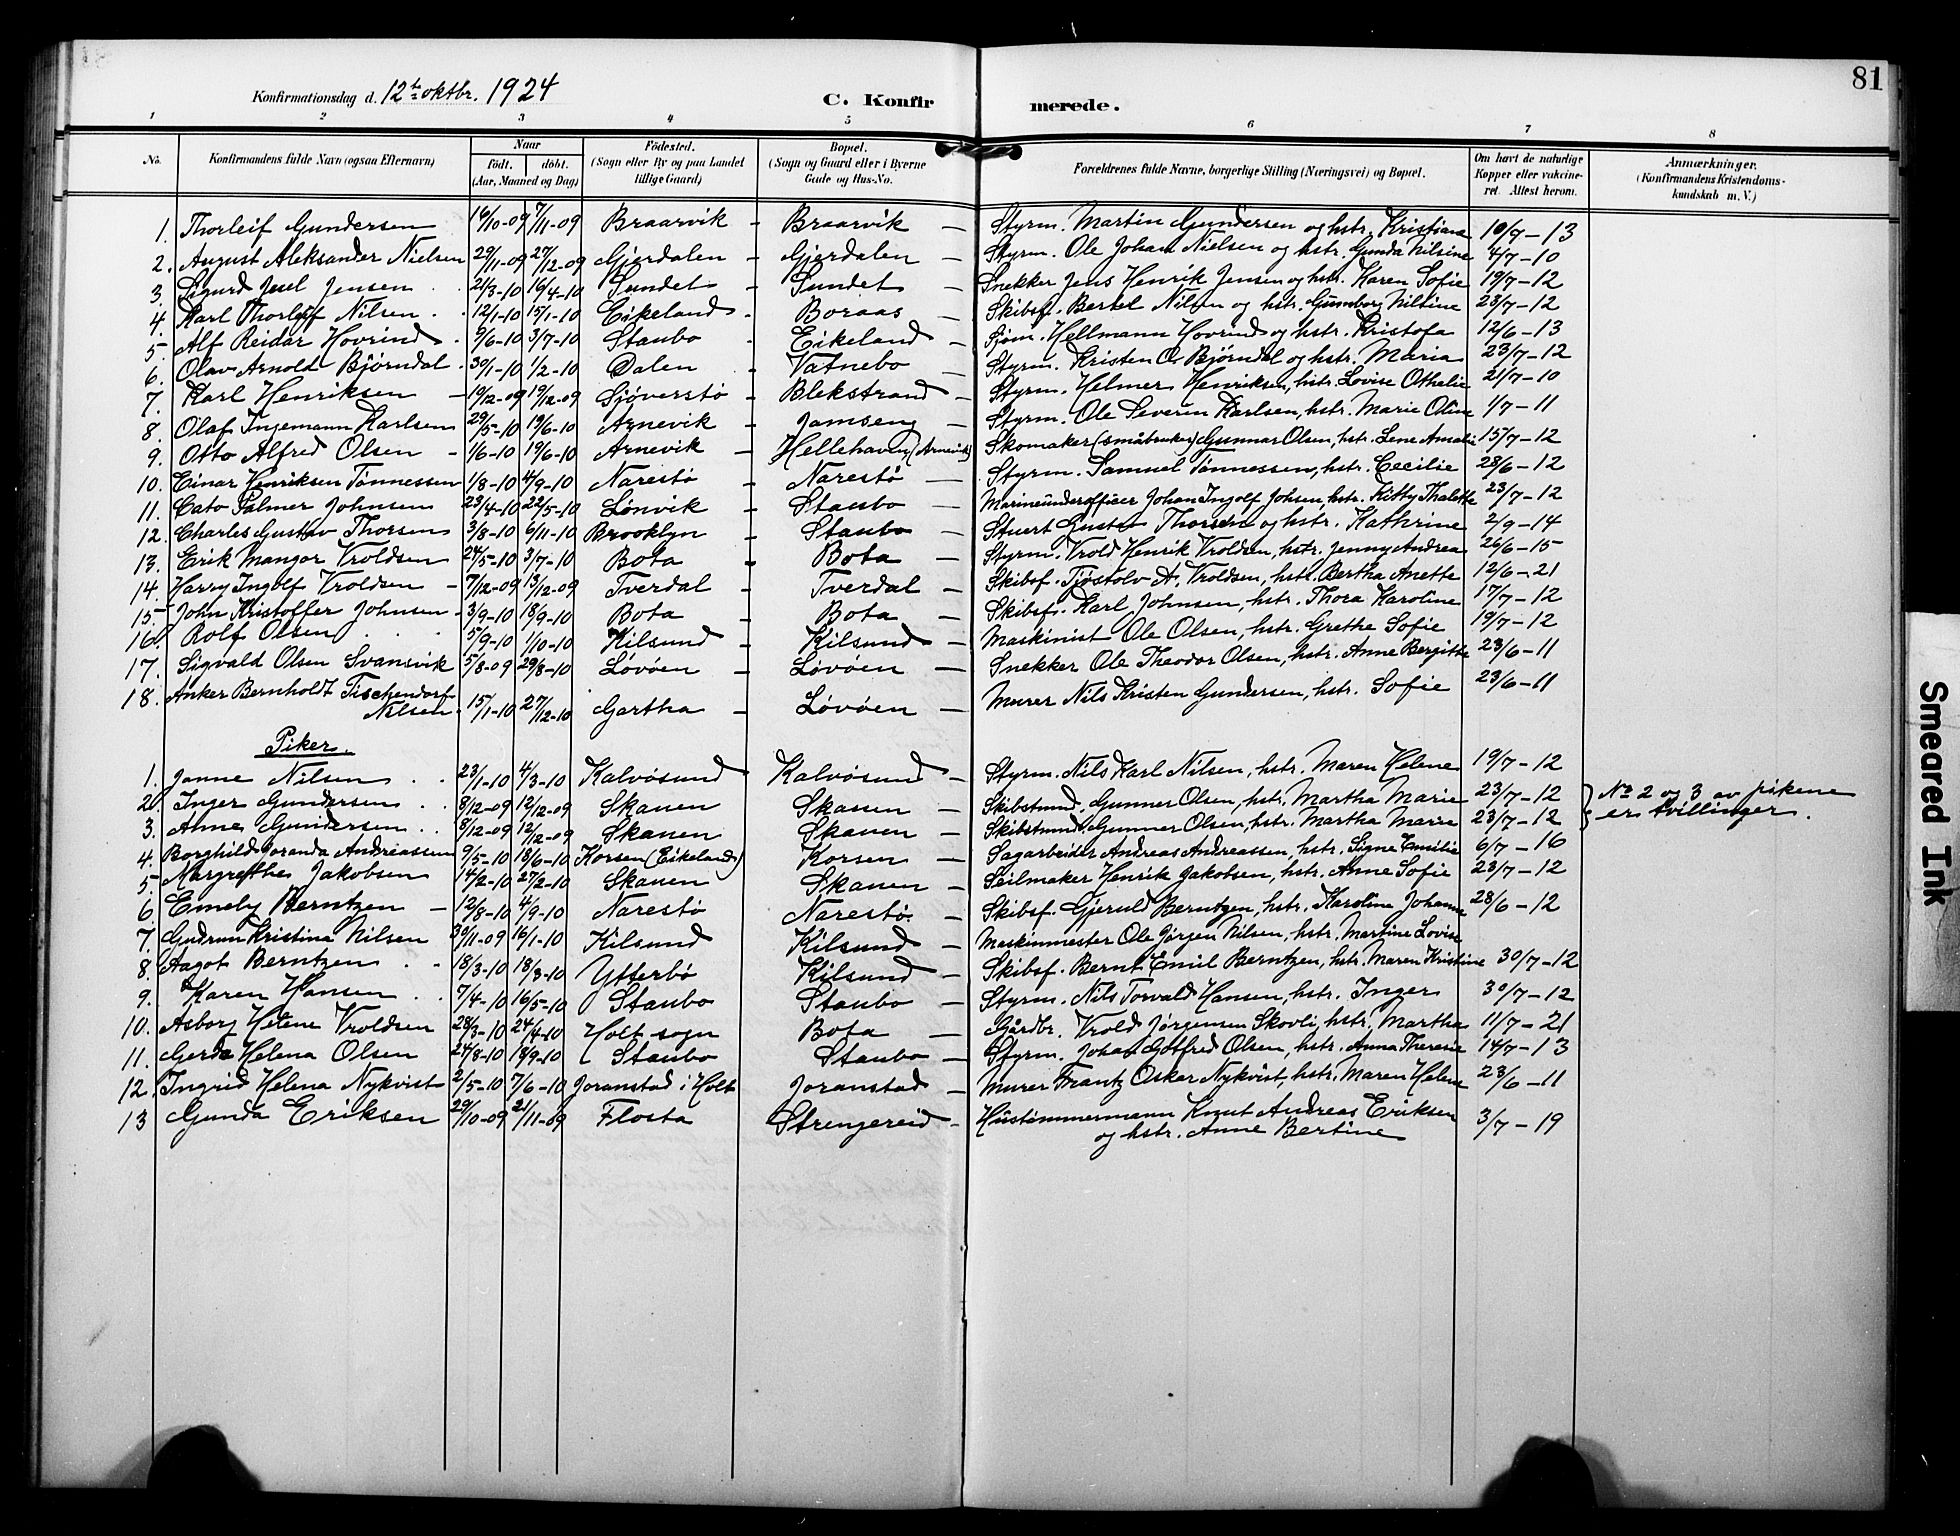 81
Konfirmationsdag d. 12te oktbr. 1924
C. Konfirmerede.
1 2 3 4 5 6 7 8
No. Konfirmandens fulde Navn (ogsaa Efternavn) Naar födt. döbt. (Aar, Maaned og Dag) Födested. (Sogn eller By og paa Landet tillige Gaard) Bopæl. (Sogn og Gaard eller i Byerne Gade og Hus-No. Forældrenes fulde Navne, borgerlige Stilling (Næringsvei) og Bopæl. Om havt de naturlige Kopper eller vaccineret. Attest herom. Anmærkninger. (Konfirmandens Kristendomskundskab m. V.)
1. Thorleif Gundersen 16/10-09 7/11-09 Braarvik - Braarvik - Styrm. Martin Gundersen og hstr. Kristiane 10/9-13
2. August Aleksander Nielsen 29/11-09 27/12-09 Gjerdalen - Gjerdalen - Styrm. Ole Johan Nielsen og hstr. Gunda Nilsine 4/7-10
3. Sigurd Josel Jensen 21/3-10 16/4-10 Sundet - Sundet - Snekker Jens Henrik Jensen og hstr. Karen Sofie 19/7-12
4. Karl Thorleif Nilsen 12/1-10 15/1-10 Eikeland - Boraas - Skibsf. Bertel Nilsen og hstr. Gunnborg Nilsine 23/7-12
5. Alf Reidar Hovrind 9/6-10 3/7-10 Staubo - Eikeland - Sjøm. Hellmann Hovrind og hstr. Kristofa 12/6-13
6. Olav Arnold Bjørndal 30/1-10 1/2-10 Dalen - Vatnebo - Styrm. Kristen O. Bjørndal og hstr. Maria 23/7-12
7. Karl Henriksen - 19/12-09 19/12-09 Sjøverstø - Blekstrand - Styrm. Helmer Henriksen, hstr. Lovise Othelie 21/7-10
8. Olaf Ingemann Karlsen 29/5-10 19/6-10 Arnevik - Jamseng - Styrm. Ole Severin Karlsen, hstr. Marie Oline 1/7-11
9. Otto Alfred Olsen - 1/6-10 19/6-10 Arnevik - Hellehaven (Arnevik) Skomaker (småbruker) Gunnar Olsen, hstr. Lene Amalie 15/7-12
10. Einar Henriksen Tønnessen 1/8-10 4/9-10 Narestø - Narestø - Styrm. Samuel Tønnessen, hstr. Cecilie 28/6-12
11. Cato Palmer Johnsen 23/4-10 22/5-10 Lønvik - Staubo - Marineunderofficer Johan Ingolf Johsen, hstr. Kitty Thalette 23/7-12
12. Charles Gustav Thorsen 3/8-10 6/11-10 Brooklyn - Staubo - Stuert Gustav Thorsen og hstr. Kathrine 2/9-14
13. Erik Mangor Vroldsen 24/5-10 3/7-10 Bota - Bota - Styrm. Vrold Henrik Vroldsen, hstr. Jenny Andrea 26/6-15
14. Harry Ingolf Vroldsen - 7/12-09 13/12-09 Tverdal - Tverdal - Skibsf. Tjøstolv A. Vroldsen, hstr. Bertha Anette 12/6-21
15. John Kristoffer Johnsen 3/9-10 18/9-10 Bota - Bota - Skibsf. Karl Johnsen, hstr. Thora Karoline 17/7-12
16. Rolf Olsen 5/9-10 1/10-10 Kilsund - Kilsund - Maskinist Ole Olsen, hstr. Grethe Sofie 19/7-12
17. Sigvald Olsen Svansvik 5/8-09 29/8-10 Løvøen - Løvøen - Snekker Ole Theodor Olsen, hstr. Anne Bergitte 23/6-11
18. Anker Bernholdt Tischendorf
Nilsen 15/1-10 27/12-10 Gartha - Løvøen - Murer Nils Kristen Gundersen, hstr. Sofie 23/6-11
Piker.
1. Janne Nilsen 23/1-10 4/3-10 Kalvøsund Kalvøsund - Styrm. Nils Karl Nilsen, hstr. Maren Helene 19/7-12
2. Inger Gundersen 8/12-09 12/12-09 Skauen Skauen - Skibstmd. Gunner Olsen, hstr. Martha Marie 23/7-12 No 2 og 3 av pikene
3. Anne Gundersen 8/12-09 12/12-09 Skauen Skauen - Skibstmd. Gunner Olsen, hstr. Martha Marie 23/7-12 er tvillinger.
4. Borghild Joranda Andreassen 9/5-10 18/6-10 Korsen (Eikeland) Korsen - Sagarbeider Andreas Andreassen, hstr. Signe Emilie 6/7-16
5. Margrethe Jakobsen 14/2-10 27/2-10 Skauen Skauen - Seilmaker Henrik Jakobsen, hstr. Anne Sofie 23/7-12
6. Emely Berntzen - 12/8-10 4/9-10 Narestø Narestø - Skibsf. Gjeruld Berntzen, hstr. Karoline Johanne 28/6-12
7. Gudrun Kristina Nilsen 30/11-09 16/1-10 Kilsund Kilsund - Maskinmester Ole Jørgen Nilsen, hstr. Martine Lovise
8. Aagot Berntzen 18/3-10 18/3-10 Ytterbø Kilsund - Skibsf. Bernt Emil Berntzen, hstr. Maren Kristine 30/7-12
9. Karen Hansen 7/4-10 16/5-10 Staubo Staubo - Styrm. Nils Torvald Hansen, hstr. Inger 30/7-12
10. Asborg Helene Vroldsen 28/3-10 24/4-10 Holt sogn Bota - Gårdbr. Vrold Jørgensen Skovli, hstr. Martha 11/7-21
11. Gerda Helena Olsen 24/8-10 18/9-10 Staubo Staubo - Styrm. Johan Gotfred Olsen, hstr. Anna Theresie 14/7-13
12. Ingrid Helena Nykvist 2/5-10 7/6-10 Joranstad i Holt Joranstad - Murer Frantz Oskar Nykvist, hstr. Maren Helene 23/6-11
13 Gunda Eriksen 29/10-09 21/11-09 Flosta Strengereid - Hustømmermann Knut Andreas Eriksen 3/7-19
og hstr. Anne Bertine
Smeared Ink